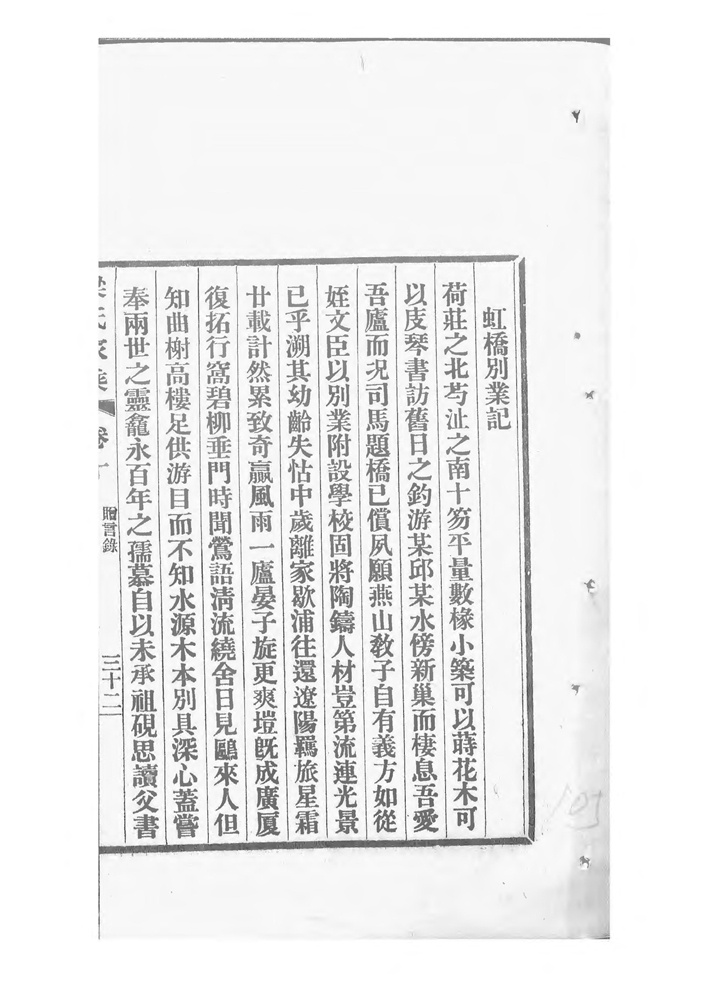 虹橋別業記
荷莊之北芍沚之南十笏平量數椽小築可以蒔花木可
以庋琴書訪舊日之釣游某邱某水傍新巢而棲息吾愛
吾廬而况司馬題橋已償夙願燕山敎子自有義方如從
姪文臣以別業附設學校固將陶鑄人材豈第流連光景
已乎溯其幼齡失怙中歲離家歇浦往還遼陽羈旅星霜
廿載計然累致奇贏風雨一廬晏子旋更爽塏旣成廣厦
復拓行窩碧柳垂門時聞鶯語淸流繞舍日見鷗來人但
知曲榭高樓足供游目而不知水源木本別具深心蓋嘗
奉兩世之靈龕永百年之孺慕自以未承祖硯思讀父書
氏家集 卷十 贈言錄 三十二